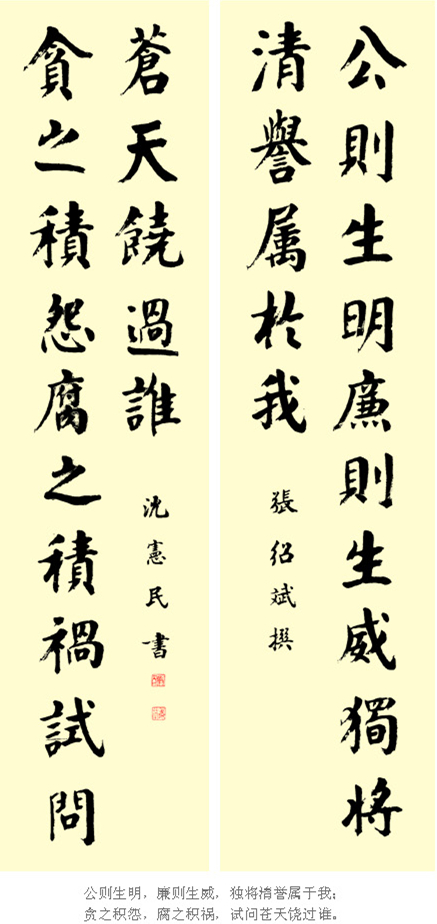 公則生明廉則生威獨將
清譽属於我
張紹斌撰
貪之積怨腐之積禍試問
蒼天饒過誰
沈憲民書
公则生明，廉则生威，独将清誉属于我；
贪之积怨，腐之积祸，试问苍天饶过谁。